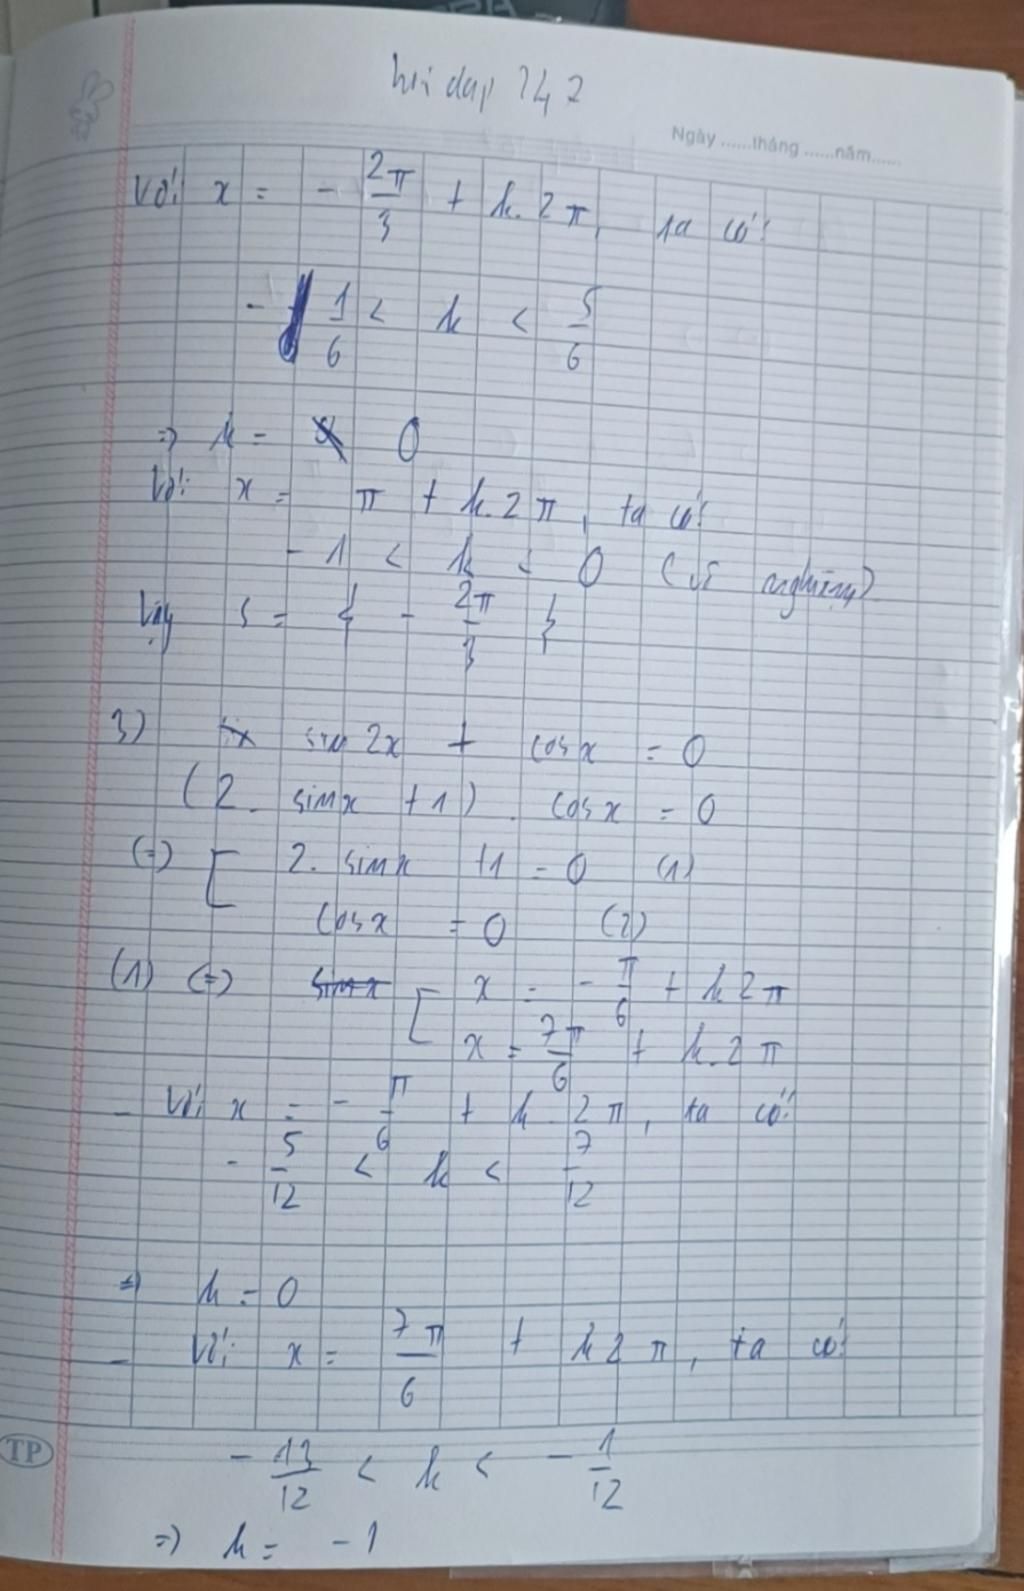 hỏi đáp 247
Ngày ......tháng ......năm......
Với x = - 2π/3 + k.2π, ta có:
- 1/6 < k < 5/6
=> k = 0
Với x = π + k.2π, ta có:
- 1 < k < 0 (vô nghiệm)
Vậy S = { - 2π/3 }
3) sin 2x + cosx = 0
(2. sinx + 1). cosx = 0
(=) [ 2. sinx +1 = 0 (1)
cosx = 0 (2)
(1) (=) [ x = - π/6 + k2π
x = 7π/6 + k.2π
- Với x = - π/6 + k.2π, ta có:
- 5/12 < k < 7/12
=> k = 0
- Với x = 7π/6 + k2π, ta có:
- 13/12 < k < - 1/12
=> k = -1
TP